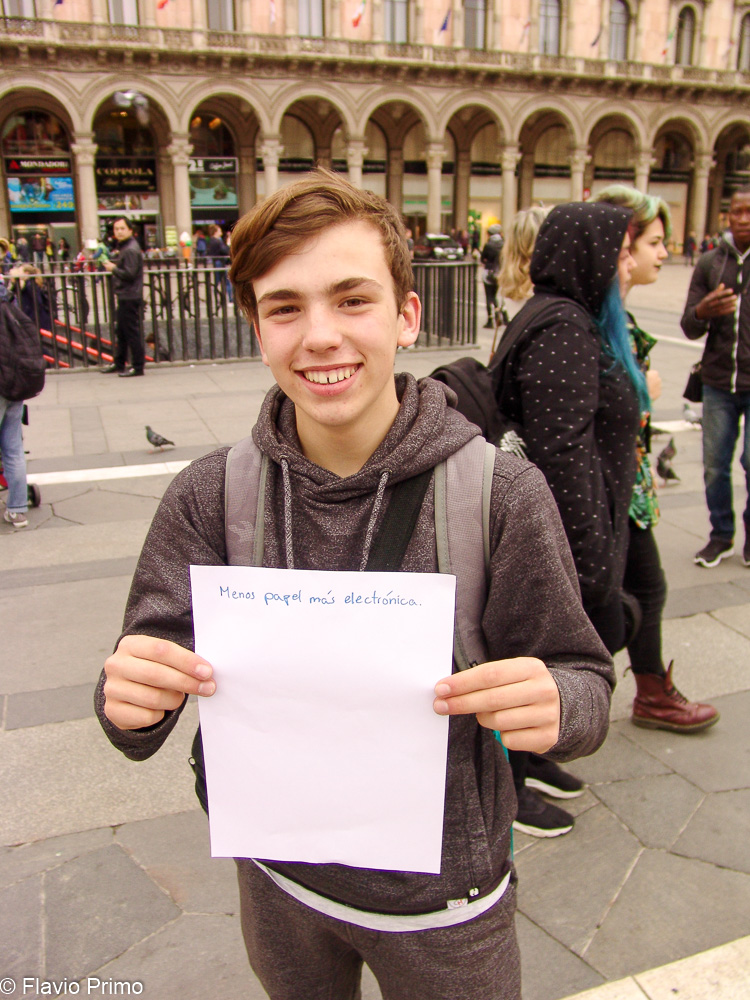 MONDADORI
COPPOLA
Menos papel más electrónica.
© Flavio Primo